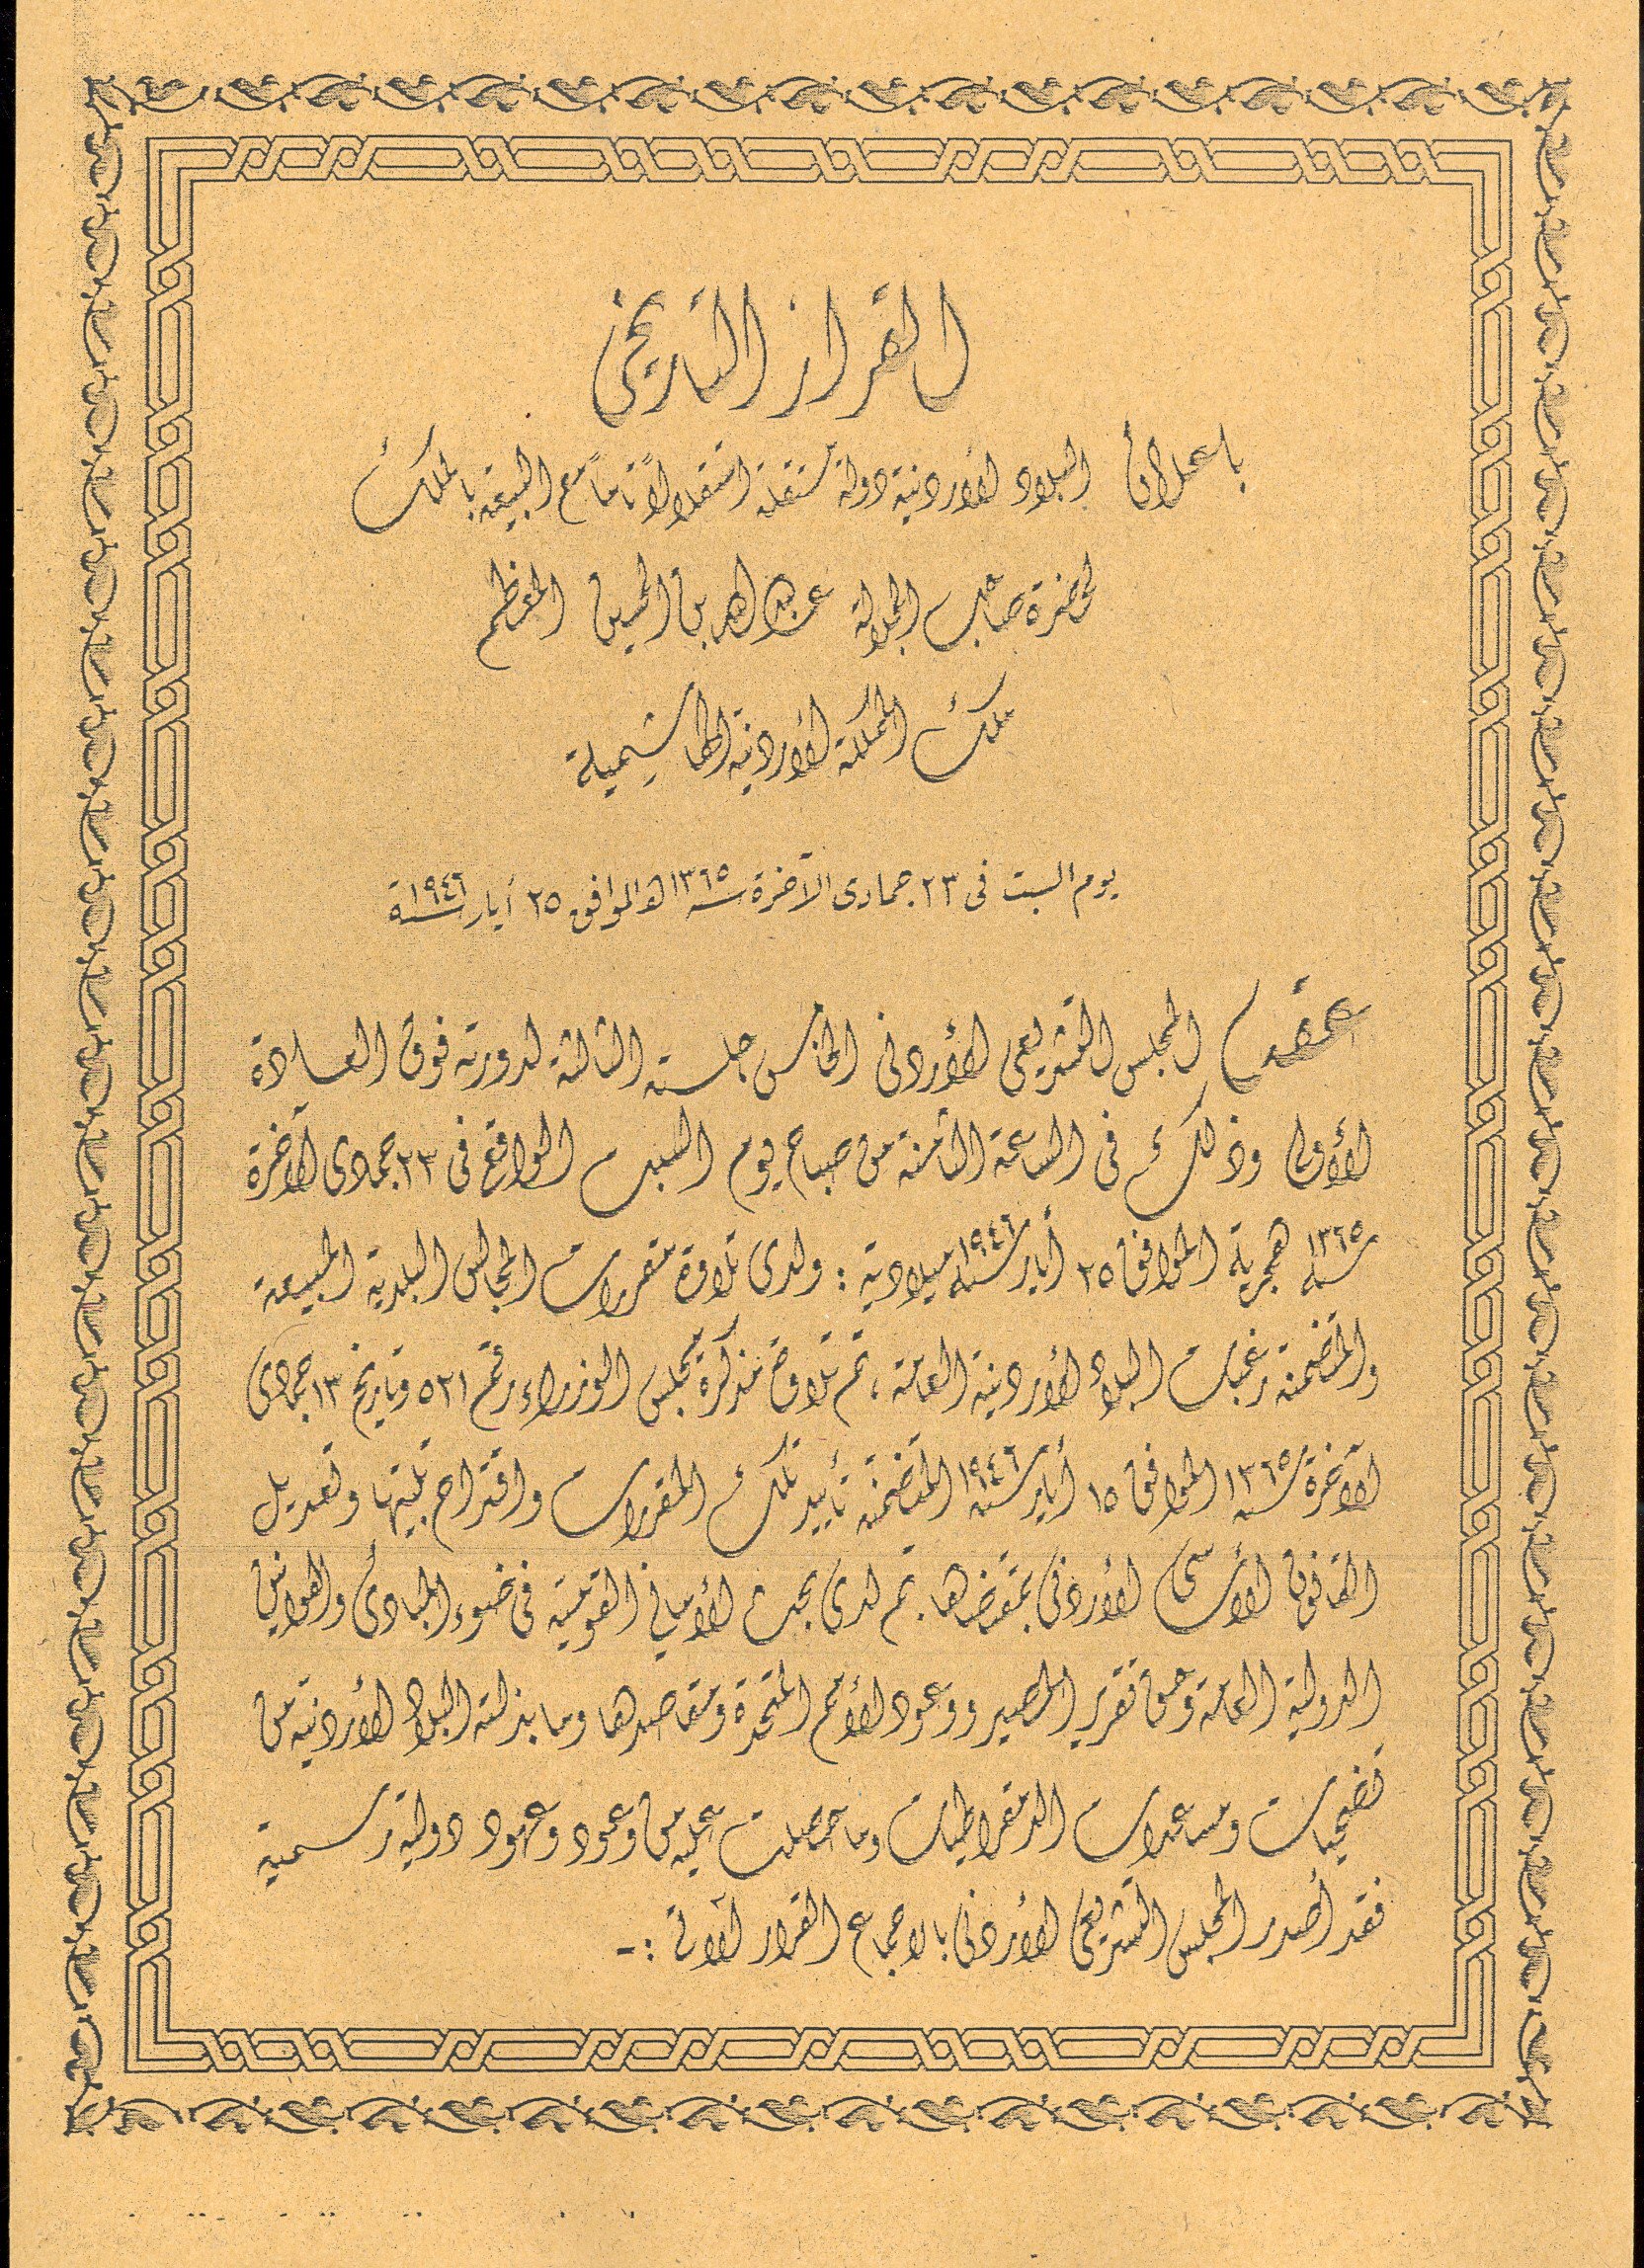 القرار التاريخي
باعلان البلاد الأردنية دولة مستقلة استقلالاً تاماً مع البيعة بالملك
لحضرة صاحب الجلالة عبدالله بن الحسين المعظم
ملك المملكة الأردنية الهاشمية
يوم السبت في ٢٣ جمادى الآخرة سنة ١٣٦٥ هـ الموافق ٢٥ أيار سنة ١٩٤٦
عقد المجلس التشريعي الأردني الخامس جلسته الثالثة لدورته فوق العادة
الأولى وذلك في الساعة الثامنة من صباح يوم السبت الواقع في ٢٣ جمادى الآخرة
سنة ١٣٦٥ هجرية الموافق ٢٥ أيار سنة ١٩٤٦ ميلادية : ولدى تلاوة مقررات المجالس البلدية المبيعة
والمتضمنة رغبات البلاد الأردنية العامة ، تم تلاوة مذكرة مجلس الوزراء رقم ٥٢١ وتاريخ ١٣ جمادى
الآخرة سنة ١٣٦٥ الموافق ١٥ أيار سنة ١٩٤٦ المتضمنة تأييد تلك المقررات واقتراح تلبيتها وتعديل
القانون الأساسي الأردني بمقتضاها. ثم لدى بحث الأماني القومية في ضوء المبادئ والقوانين
الدولية العامة وحق تقرير المصير ووعود الأمم المتحدة ومقاصدها وما بذلته البلاد الأردنية من
تضحيات ومساعدات الدمقراطيات وما حصلت عليه من وعود وعهود دولية رسمية
فقد أصدر المجلس التشريعي الأردني بالاجماع القرار الآتي :-